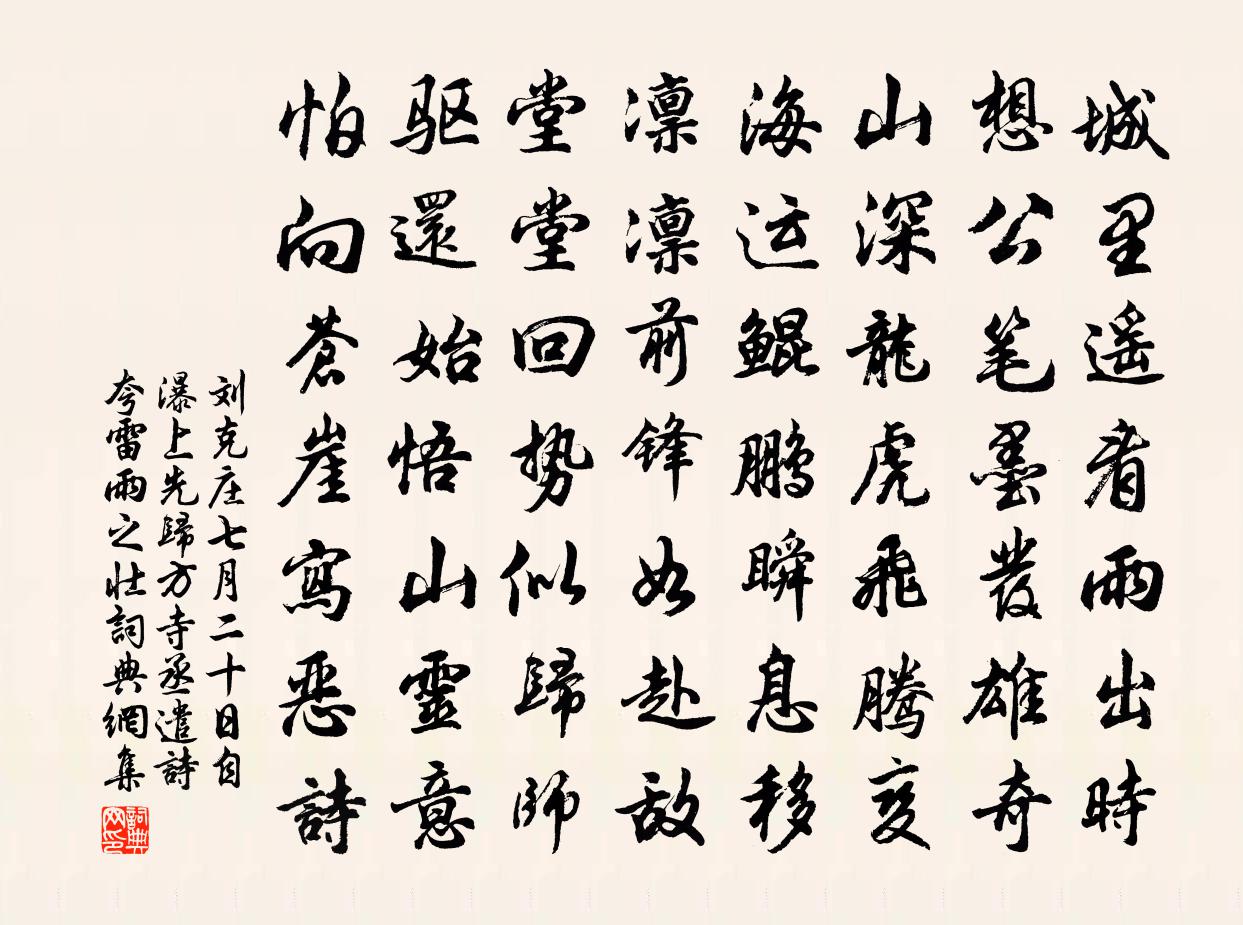 城里遥看雨出時
想公笔墨發雄奇
山深龍虎飛騰变
海运鲲鹏瞬息移
凛凛前锋如赴敌
堂堂回势似歸師
驱還始悟山靈意
怕向蒼崖寫惡詩
刘克庄七月二十日自
瀑上先歸方寺丞遣詩
夸雷雨之壮詞典網集
詞典網印